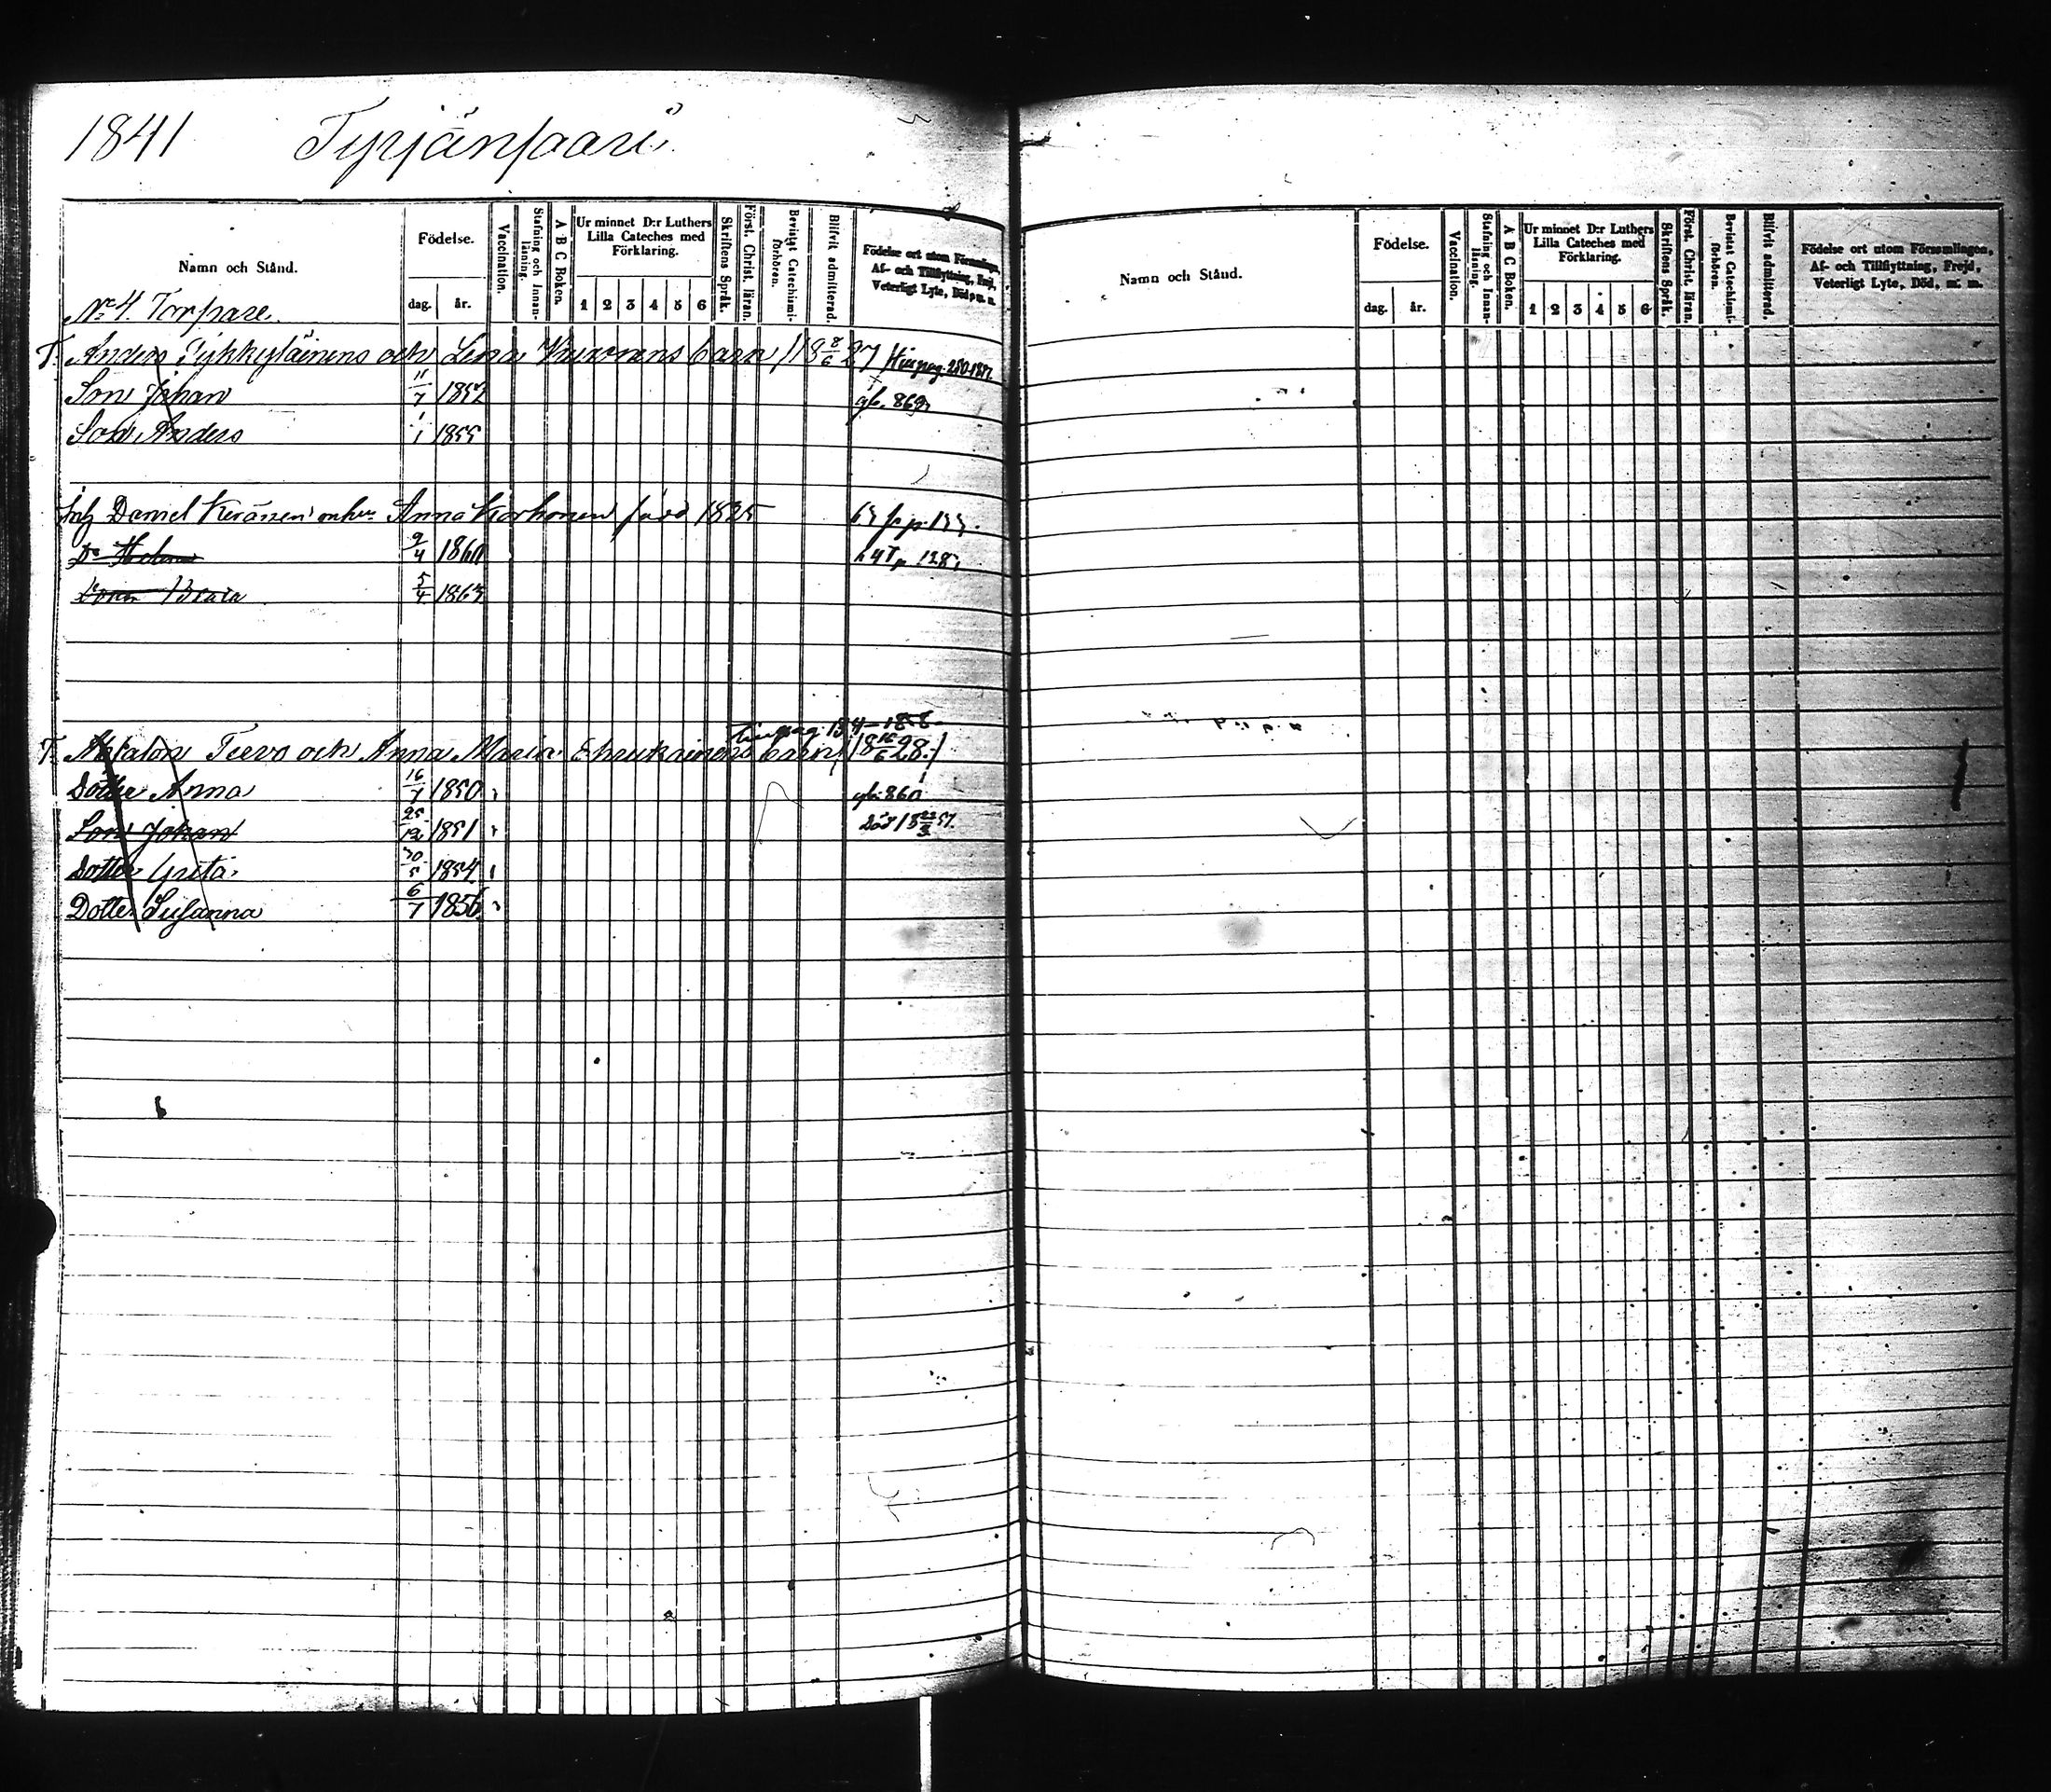 1841 Tyrjänsaari
Namn och Stånd.
Födelse.
dag. år.
Vaccination.
Stafning och Innanläsning.
A B C Boken.
Ur minnet D:r Luthers Lilla Cateches med Förklaring.
1 2 3 4 5 6
Skriftens Språk.
Först. Christ. läran.
Bevistat Catechismiförhören.
Blifvit admitterad.
Födelse ort utom Församlingen, Af- och Tillflyttning, Frejd, Veterligt Lyte, Död, m. m.
No 4. Torpare.
T. Anders och Lena barn 18 8/6 27
Son Johan 11/7 1852
Son Anders 1 1855
Daniel Keränen Anna Korhonen född 1825
Dr Helena 9/4 1860
5/4 1863
T. Teevo och Anna Maria barn
Dotter Anna 16/7 1850
Son Johan 25/12 1851 död
Dotter Greta 30/5 1854
Dotter Susanna 6/7 1856
Namn och Stånd.
Födelse.
dag. år.
Vaccination.
Stafning och Innanläsning.
A B C Boken.
Ur minnet D:r Luthers Lilla Cateches med Förklaring.
1 2 3 4 5 6
Skriftens Språk.
Först. Christ. läran.
Bevistat Catechismiförhören.
Blifvit admitterad.
Födelse ort utom Församlingen, Af- och Tillflyttning, Frejd, Veterligt Lyte, Död, m. m.